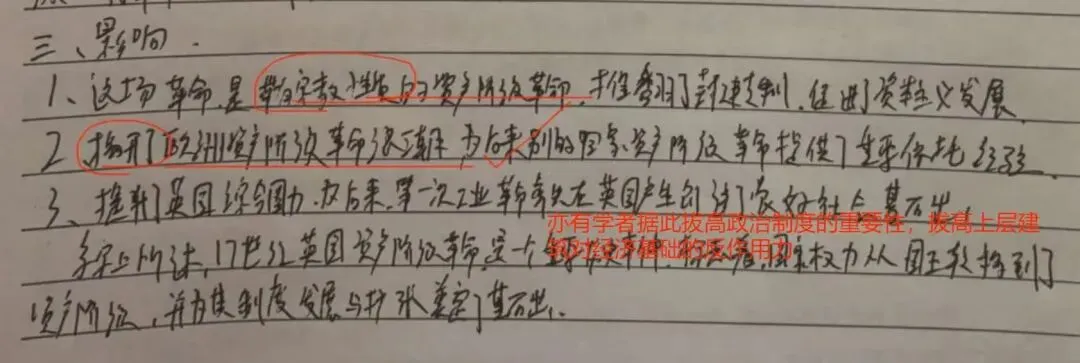 三、影响.
1、这场革命是带有宗教性质的资产阶级革命,推翻了封建专制,促进了资本主义发展
2 揭开了欧洲资产阶级革命 为后来别的国家资产阶级革命提供了重要依托经验.
3、推升了英国综合国力.为后来第一次工业革命率先在英国产生创造了良好社会基础.
亦有学者据此拔高政治制度的重要性,拔高上层建
筑对经济基础的反作用力
综上所述,17世纪英国资产阶级革命是一个 权力从国王转移到了
资产阶级,并为其制度发展与扩张奠定了基础.